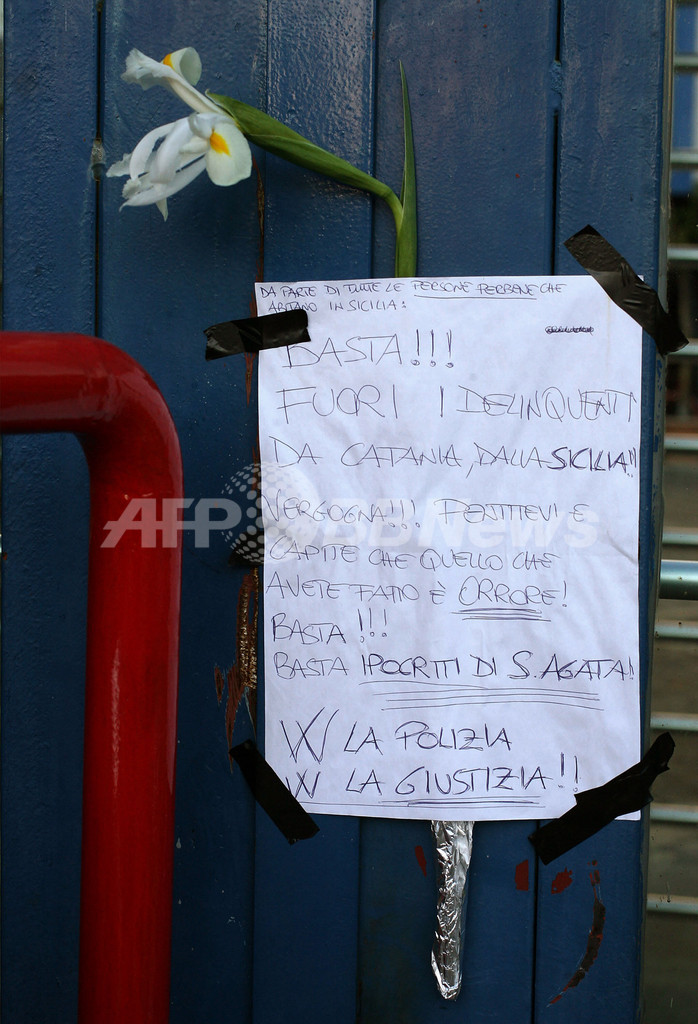 DA PARTE DI TUTTE LE PERSONE PERBENE CHE
ABITANO IN SICILIA:
BASTA!!!
FUORI I DELINQUENTI
DA CATANIA, DALLA SICILIA!!
VERGOGNA!!! PENTITEVI E
CAPITE CHE QUELLO CHE
AVETE FATTO È ORRORE!
BASTA!!!
BASTA IPOCRITI DI S. AGATA!
W LA POLIZIA
W LA GIUSTIZIA!!
AFPBBNews